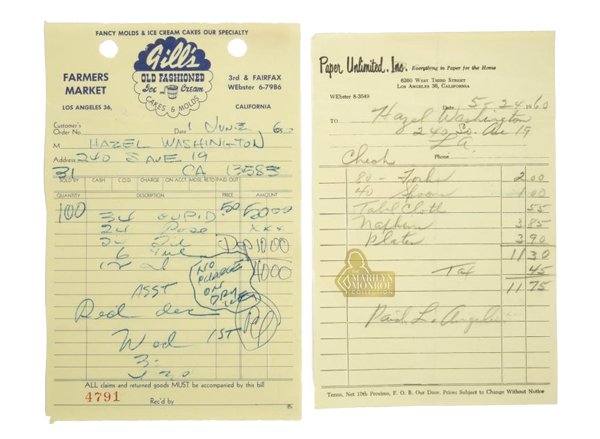 FANCY MOLDS & ICE CREAM CAKES OUR SPECIALTY
Gill's
OLD FASHIONED
Ice Cream
CAKES & MOLDS
FARMERS
MARKET
LOS ANGELES 36,
3rd & FAIRFAX
WEbster 6-7986
CALIFORNIA
Customer's
Order No.
Date 1 JUNE 60
M HAZEL WASHINGTON
Address 240 S AVE 19
31 CA 13583
SOLD BY CASH C.O.D. CHARGE ON ACCT. MDSE. RETD. PAID OUT
QUANTITY DESCRIPTION PRICE AMOUNT
100
34 CUPID .50 50.00
24 Rose xxx
Dep 10.00
6
40.00
NO
CHARGE
ON
DRY
ICE
ASST
Red
Wed 1ST
3:
ALL claims and returned goods MUST be accompanied by this bill
4791
Rec'd by
Paper Unlimited, Inc. Everything in Paper for the Home
6260 WEST THIRD STREET
LOS ANGELES 36, CALIFORNIA
WEbster 8-3549
Date 5-24-60
TO Hazel Washington
240 So. Ave 19
L.A.
Phone
Check
80 - Forks 2.00
40 Spoon 1.00
Table Cloth 55
Napkins 3.85
Plates 3.90
11 30
Tax 45
11 75
Paid L. Angeles
MARILYN
MONROE
COLLECTION
Terms, Net 10th Proximo, F. O. B. Our Door. Prices Subject to Change Without Notice